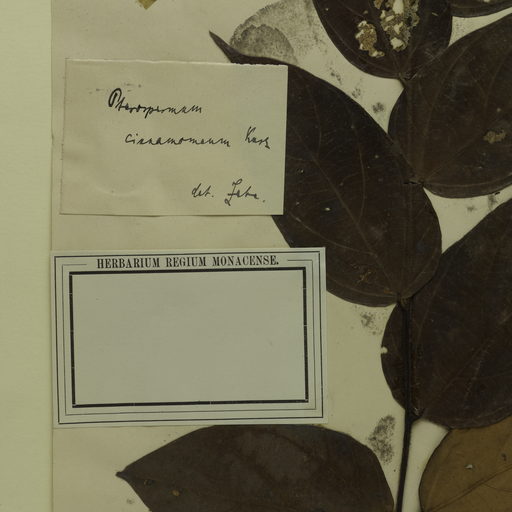 Pterospermum
cinnamomeum Kurz
det.
HERBARIUM REGIUM MONACENSE.